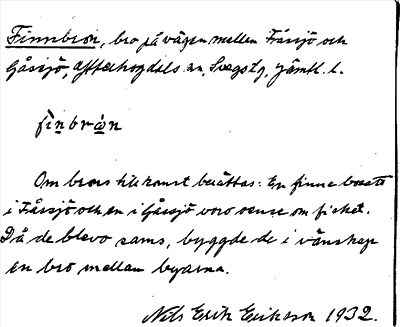 Finnbron, bro på vägen mellan Fåssjö och
Gåssjö, Ytterhogdals sn, Svegs tg, Jämtl. l.
fìnbrɷ̀n
Om brons tillkomst berättas: En finne bosatt
i Fåssjö och en i Gåssjö voro osense om fisket.
Då de blevo sams, byggde de i vänskap
en bro mellan byarna.
Nils Erik Eriksson 1932.